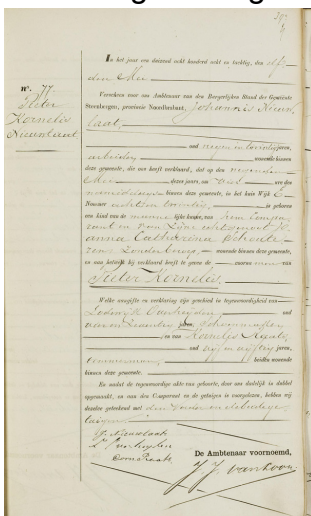 N°. 77
Pieter
Kornelis
Nieuwlaat
In het jaar een duizend acht honderd acht en tachtig, den elf-
den Mei
Verscheen voor ons Ambtenaar van den Burgerlijken Stand der Gemeente
Steenbergen, provincie Noordbrabant, Johannis Nieuw-
laat,
oud negen en twintig jaren,
arbeider, wonende binnen
deze gemeente, die ons heeft verklaard, dat op den negenden
Mei dezes jaars, om ure des
namiddags binnen deze gemeente, in het huis Wijk
Nommer achttien is geboren
een kind van de mannelijke kunne, van hem
en van zijne echtgenoote Jo-
anna Catharina
zonder beroep, wonende binnen deze gemeente,
en aan hetwelk hij verklaard heeft te geven de voornamen van
Pieter Kornelis.
Welke aangifte en verklaring zijn geschied in tegenwoordigheid van
Lodewijk oud
vier en zestig jaren,
en van Kornelis
oud vijf en vijftig jaren,
timmerman, beiden wonende
binnen deze gemeente.
En nadat de tegenwoordige akte van geboorte, door ons dadelijk in dubbel
opgemaakt, en aan den Comparant en de getuigen is voorgelezen, hebben wij
dezelve geteekend met den
getuigen.
J. Nieuwlaat
De Ambtenaar voornoemd,